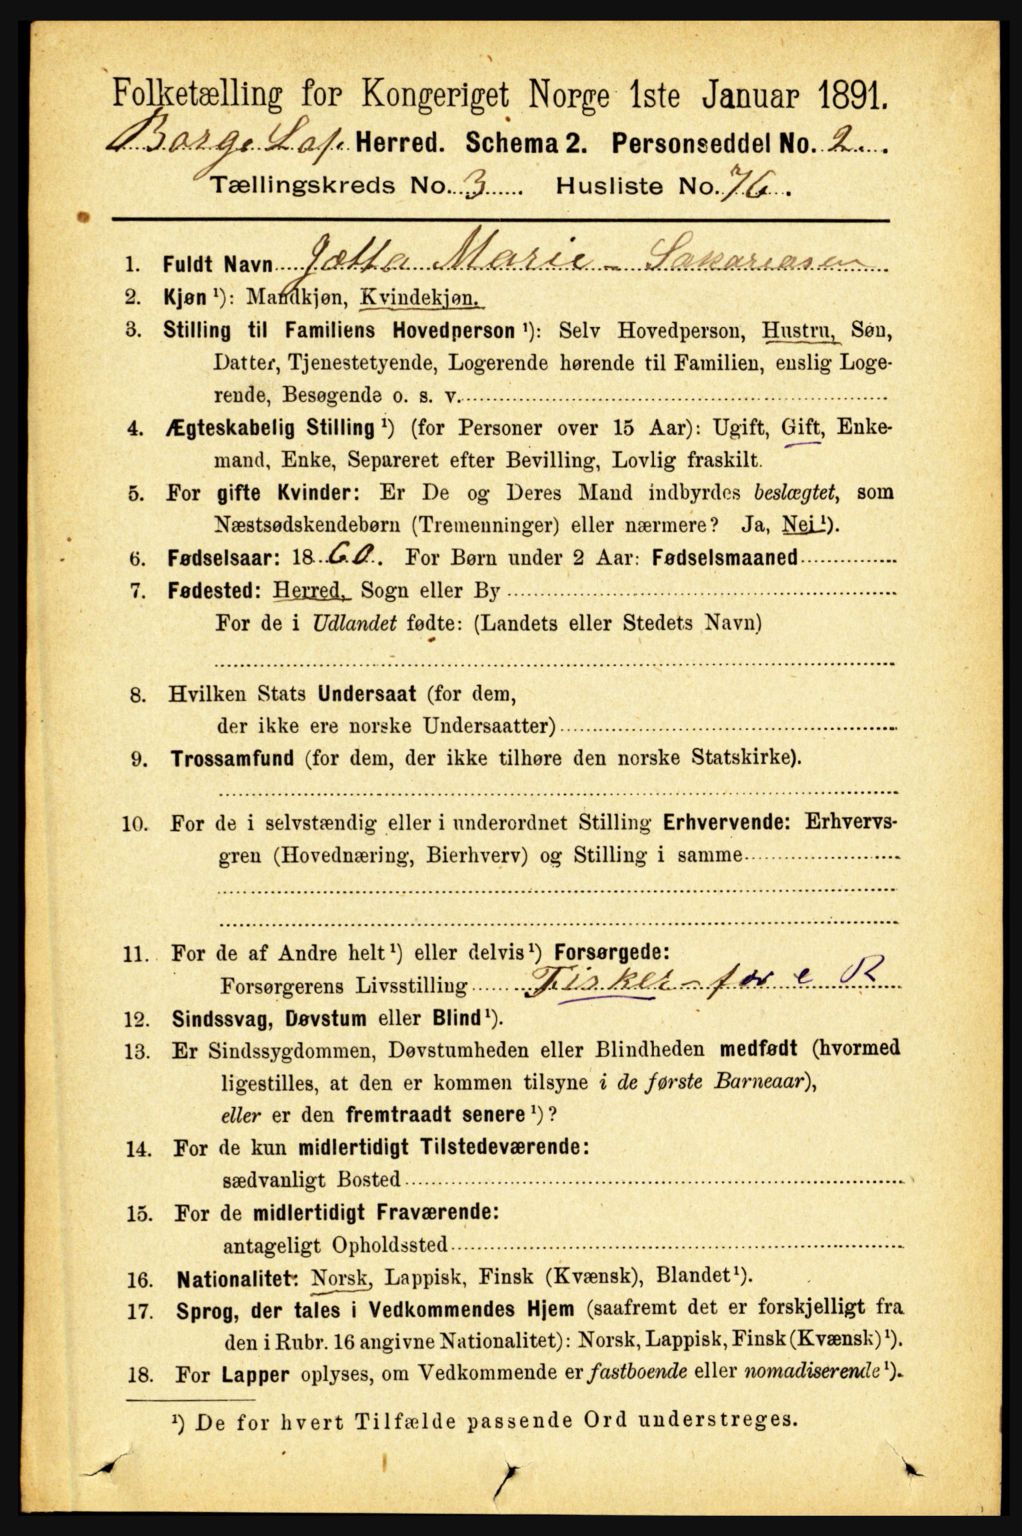 Folketælling for Kongeriget Norge 1ste Januar 1891.
Borge Lof. Herred. Schema 2. Personseddel No. 2.
Tællingskreds No. 3. Husliste No. 76.
1. Fuldt Navn Jætta Marie Sakariasen
2. Kjøn ¹): Mandkjøn, Kvindekjøn.
3. Stilling til Familiens Hovedperson ¹): Selv Hovedperson, Hustru, Søn,
Datter, Tjenestetyende, Logerende hørende til Familien, enslig Loge-
rende, Besøgende o. s. v.
4. Ægteskabelig Stilling ¹) (for Personer over 15 Aar): Ugift, Gift, Enke-
mand, Enke, Separeret efter Bevilling, Lovlig fraskilt.
5. For gifte Kvinder: Er De og Deres Mand indbyrdes beslægtet, som
Næstsødskendebørn (Tremenninger) eller nærmere? Ja, Nei ¹).
6. Fødselsaar: 1860. For Børn under 2 Aar: Fødselsmaaned
7. Fødested: Herred, Sogn eller By
For de i Udlandet fødte: (Landets eller Stedets Navn)
8. Hvilken Stats Undersaat (for dem,
der ikke ere norske Undersaatter)
9. Trossamfund (for dem, der ikke tilhøre den norske Statskirke).
10. For de i selvstændig eller i underordnet Stilling Erhvervende: Erhvervs-
gren (Hovednæring, Bierhverv) og Stilling i samme
11. For de af Andre helt ¹) eller delvis ¹) Forsørgede:
Forsørgerens Livsstilling Fisker - for e R
12. Sindssvag, Døvstum eller Blind ¹).
13. Er Sindssygdommen, Døvstumheden eller Blindheden medfødt (hvormed
ligestilles, at den er kommen tilsyne i de første Barneaar),
eller er den fremtraadt senere ¹)?
14. For de kun midlertidigt Tilstedeværende:
sædvanligt Bosted
15. For de midlertidigt Fraværende:
antageligt Opholdssted
16. Nationalitet: Norsk, Lappisk, Finsk (Kvænsk), Blandet ¹).
17. Sprog, der tales i Vedkommendes Hjem (saafremt det er forskjelligt fra
den i Rubr. 16 angivne Nationalitet): Norsk, Lappisk, Finsk (Kvænsk) ¹).
18. For Lapper oplyses, om Vedkommende er fastboende eller nomadiserende ¹).
¹) De for hvert Tilfælde passende Ord understreges.